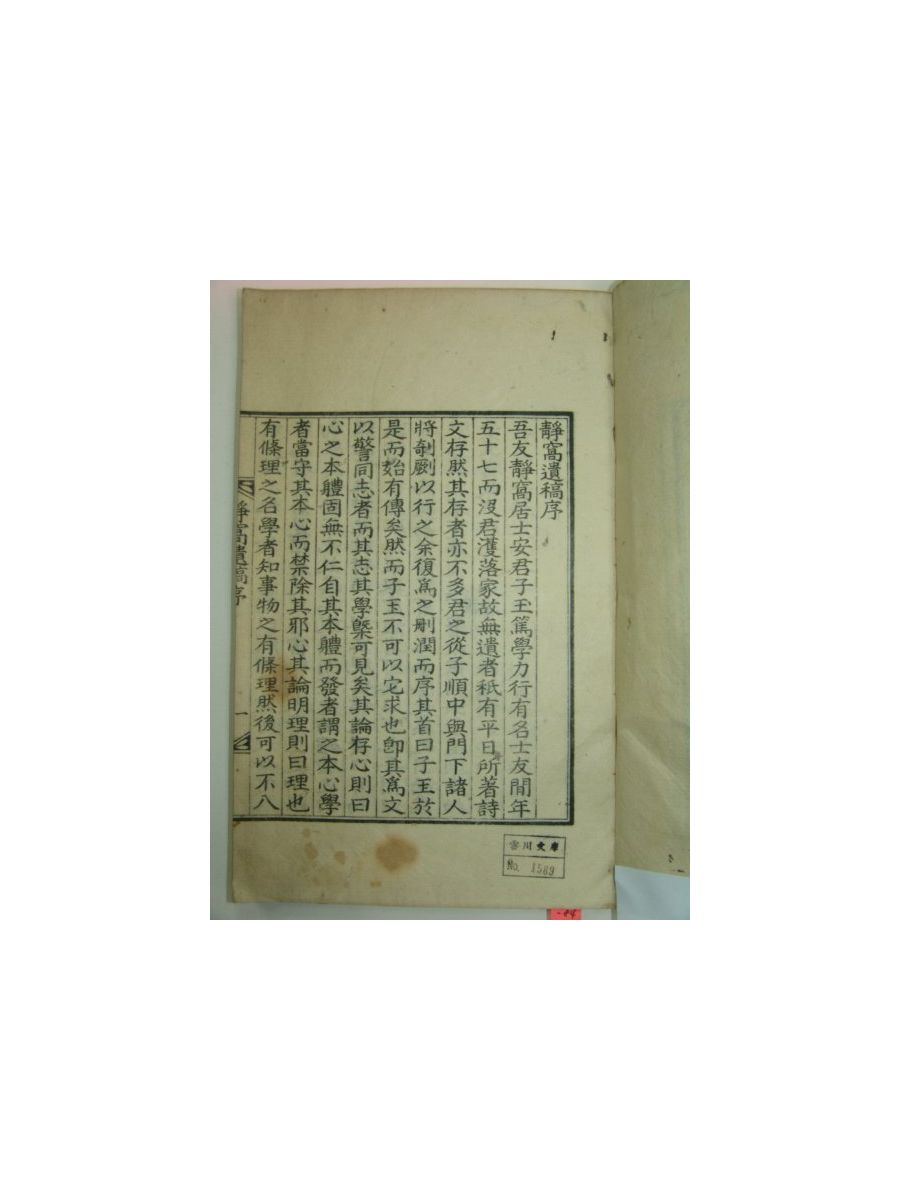 靜窩遺稿序
吾友靜窩居士安君子王篤學力行有名士友間年
五十七而沒君濩落家故無遺者秪有平日所著詩
文存然其存者亦不多君之從子順中與門下諸人
將剞劂以行之余復爲之刪潤而序其首曰子王於
是而始有傳矣然而子王不可以它求也卽其爲文
以警同志者而其志其學槩可見矣其論存心則曰
心之本體固無不仁自其本體而發者謂之本心學
者當守其本心而禁除其邪心其論明理則曰理也
有條理之名學者知事物之有條理然後可以不八
靜窩遺稿序
一
川文庫
No. 1589
-84